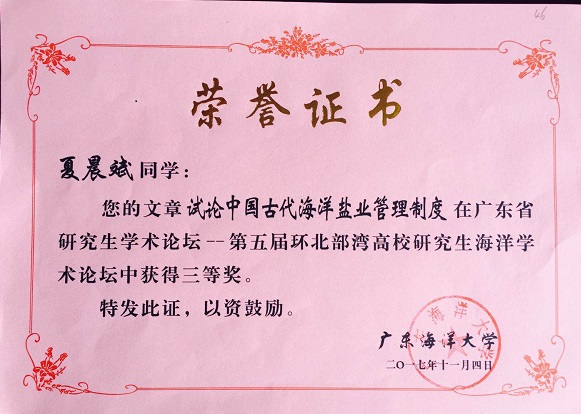 46
荣誉证书
夏晨斌同学：
您的文章试论中国古代海洋盐业管理制度在广东省
研究生学术论坛--第五届环北部湾高校研究生海洋学
术论坛中获得三等奖。
特发此证，以资鼓励。
广东海洋大学
二〇一七年十一月四日